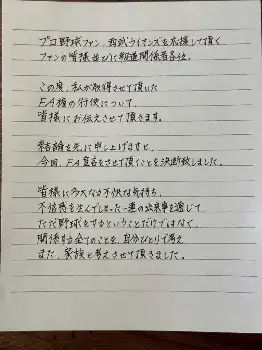 プロ野球ファン、西武ライオンズを応援して頂く
ファンの皆様並びに報道関係者各位。
この度、私が取得させて頂いた
FA権の行使について、
皆様にお伝えさせて頂きます。
結論を先に申し上げますと、
今回、FA宣言をさせて頂くことを決断致しました。
皆様に多大なる不快な気持ち、
不信感を生んでしまった一連の出来事を通じて、
ただ野球をするということだけではなく、
関係する全てのことを、自分ひとりで考え
また、家族と考えさせて頂きました。